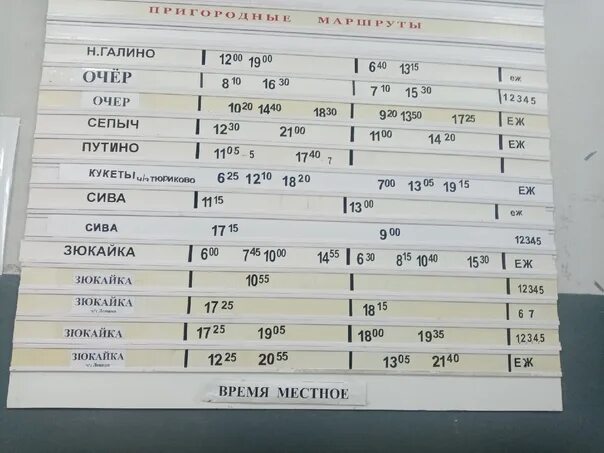 ПРИГОРОДНЫЕ МАРШРУТЫ
Н.ГАЛИНО 12⁰⁰ 19⁰⁰ 6⁴⁰ 13¹⁵ еж
ОЧЁР 8¹⁰ 16³⁰ 7¹⁰ 15³⁰ 12345
ОЧЕР 10²⁰ 14⁴⁰ 18³⁰ 9²⁰ 13⁵⁰ 17²⁵ ЕЖ
СЕПЫЧ 12³⁰ 21⁰⁰ 11⁰⁰ 14²⁰ ЕЖ
ПУТИНО 11⁰⁵-5 17⁴⁰ 7
КУКЕТЫ ч/з ТЮРИКОВО 6²⁵ 12¹⁰ 18²⁰ 7⁰⁰ 13⁰⁵ 19¹⁵ ЕЖ
СИВА 11¹⁵ 13⁰⁰ еж
СИВА 17¹⁵ 9⁰⁰ 12345
ЗЮКАЙКА 6⁰⁰ 7⁴⁵ 10⁰⁰ 14⁵⁵ 6³⁰ 8¹⁵ 10⁴⁰ 15³⁰ ЕЖ
ЗЮКАЙКА 10⁵⁵ 12345
ЗЮКАЙКА 17²⁵ 18¹⁵ 6 7
ЗЮКАЙКА 17²⁵ 19⁰⁵ 18⁰⁰ 19³⁵ 12345
ЗЮКАЙКА 12²⁵ 20⁵⁵ 13⁰⁵ 21⁴⁰ ЕЖ
ВРЕМЯ МЕСТНОЕ